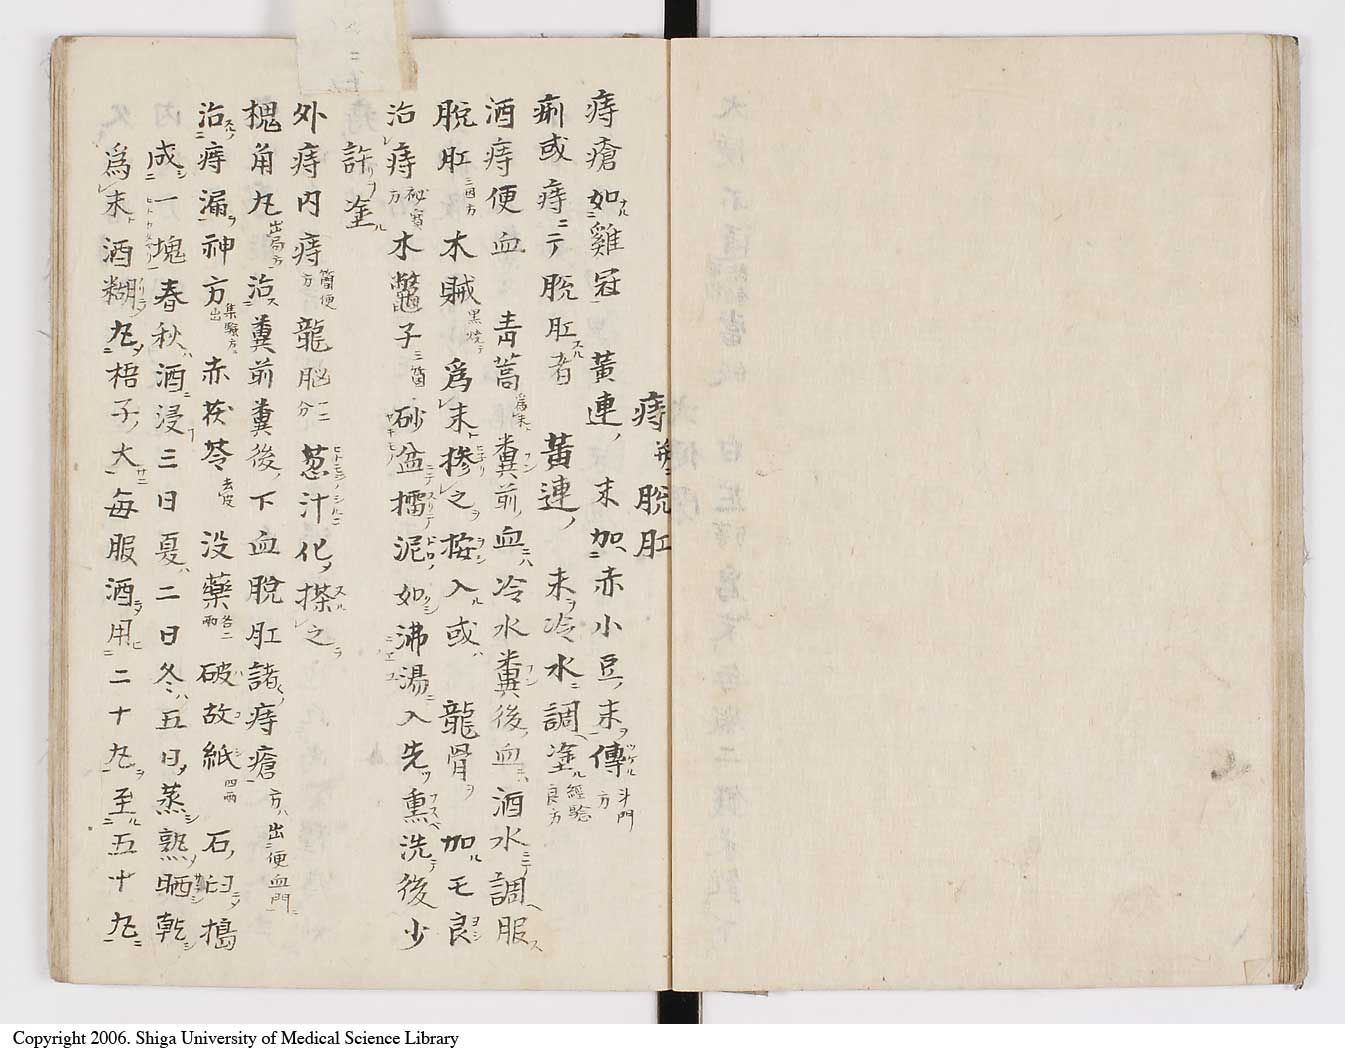 痔并脱肛
痔瘡如雞冠黃連末加赤小豆末傳斗門方
痢或痔ニテ脱肛スル者 黃連末冷水調塗經驗良方
酒痔便血 青蒿為末糞前血ニハ冷水糞後血ニハ酒水ニテ調服
脱肛三因方 木賊黒焼 爲末摻之按入或 龍骨加モ良
治痔方秘寶 木鼈子三箇 砂盆擂泥如沸湯入先熏洗後少
許塗
外痔内痔簡便方 龍脳一二分 葱汁化搽之
槐角丸出局方 治糞前糞後下血脱肛諸痔瘡方出便血門
治痔漏神方出集験方 赤茯苓去皮 没藥各二両 破故紙四両 石臼搗
成一塊春秋酒浸三日夏二日冬五日蒸熟晒乾
爲末酒糊丸梧子大毎服酒用二十丸至五十丸
Copyright 2006. Shiga University of Medical Science Library